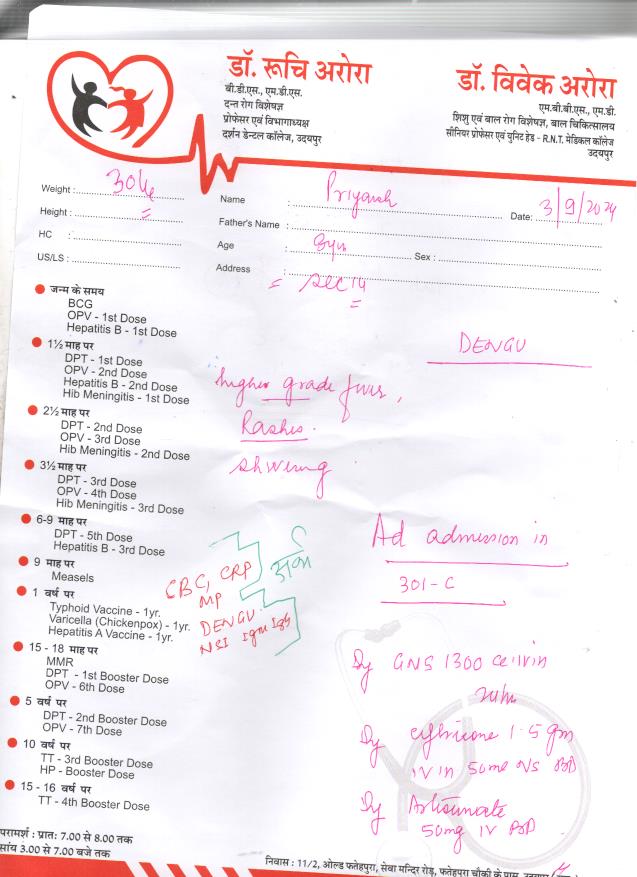 डॉ. रूचि अरोरा
बी.डी.एस., एम.डी.एस.
दन्त रोग विशेषज्ञ
प्रोफेसर एवं विभागाध्यक्ष
दर्शन डेन्टल कॉलेज, उदयपुर
डॉ. विवेक अरोरा
एम.बी.बी.एस., एम.डी.
शिशु एवं बाल रोग विशेषज्ञ, बाल चिकित्सालय
सीनियर प्रोफेसर एवं युनिट हेड - R.N.T. मेडिकल कॉलेज
उदयपुर
Weight : 30
Height :
HC :
US/LS :
Name : Priyansh
Date: 3/9/2024
Father's Name :
Age : Sex :
Address : Sec 14
जन्म के समय
BCG
OPV - 1st Dose
Hepatitis B - 1st Dose
1½ माह पर
DPT - 1st Dose
OPV - 2nd Dose
Hepatitis B - 2nd Dose
Hib Meningitis - 1st Dose
2½ माह पर
DPT - 2nd Dose
OPV - 3rd Dose
Hib Meningitis - 2nd Dose
3½ माह पर
DPT - 3rd Dose
OPV - 4th Dose
Hib Meningitis - 3rd Dose
6-9 माह पर
DPT - 5th Dose
Hepatitis B - 3rd Dose
9 माह पर
Measels
1 वर्ष पर
Typhoid Vaccine - 1yr.
Varicella (Chickenpox) - 1yr.
Hepatitis A Vaccine - 1yr.
15 - 18 माह पर
MMR
DPT - 1st Booster Dose
OPV - 6th Dose
5 वर्ष पर
DPT - 2nd Booster Dose
OPV - 7th Dose
10 वर्ष पर
TT - 3rd Booster Dose
HP - Booster Dose
15 - 16 वर्ष पर
TT - 4th Booster Dose
DENGU
higher grade
Rashes.
CBC, CRP
MP
DENGU
NSI Igm IgG
Ad admission in
301-C
GNS 1300
1.5 gm
IV in 50ml NS BD
50mg IV BD
परामर्श : प्रात: 7.00 से 8.00 तक
सांय 3.00 से 7.00 बजे तक
निवास : 11/2, ओल्ड फतेहपुरा, सेवा मन्दिर रोड़, फतेहपुरा चौकी के पास, उदयपुर